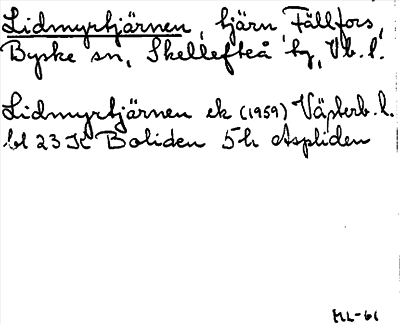 Lidmyrtjärnen, tjärn, Fällfors,
Byske sn, Skellefteå tg, Vb. l.
Lidmyrtjärnen ek (1959) Västerb. l.
bl 23 K Boliden 5h Aspliden
ML-61